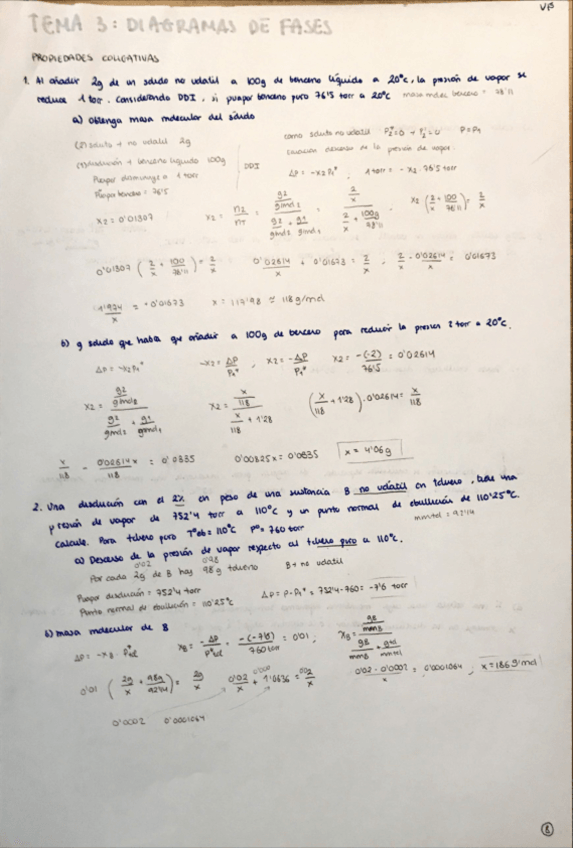 VB
TEMA 3: DIAGRAMAS DE FASES
PROPIEDADES COLIGATIVAS
1. Al añadir 2g de un soluto no volatil a 100g de benceno líquido a 20°C, la presión de vapor se
reduce 1 torr. Considerando DDI, si pvapor benceno puro 76'5 torr a 20°C masa molec benceno = 78'11
a) Obtenga masa molecular del soluto
(2) soluto → no volatil 2g
(1) disolución → benceno líquido 100g
Pvapor disminuye a 1 torr
Pvapor benceno = 76'5
DDI
como soluto no volatil P₂*=0 → P₂=0 P=P₁
ecuación descenso de la presión de vapor
ΔP = -x₂P₁* , 1 torr = -x₂ · 76'5 torr
x₂ = 0'01307 x₂ = n₂/nT = (g₂/g/mol₂)/(g₂/gmol₂ + g₁/gmol₁) = (2/x)/(2/x + 100g/78'11) x₂(2/x + 100/78'11) = 2/x
0'01307 (2/x + 100/78'11) = 2/x 0'02614/x + 0'01673 = 2/x , 2/x - 0'02614/x = 0'01673
1'974/x = +0'01673 x = 117'98 ≈ 118 g/mol
b) g soluto que habría que añadir a 100g de benceno para reducir la presión 2 torr a 20°C.
ΔP = -x₂P₁* -x₂ = ΔP/P₁* , x₂ = -ΔP/P₁* x₂ = -(-2)/76'5 = 0'02614
x₂ = (g₂/g/mol₂)/(g₂/gmol₂ + g₁/gmol₁) x₂ = (x/118)/(x/118 + 1'28) (x/118 + 1'28) · 0'02614 = x/118
x/118 - 0'02614x/118 = 0'0335 0'00825x = 0'0335 x = 4'06g
2. Una disolución con el 2% en peso de una sustancia B no volatil en tolueno, tiene una
presión de vapor de 752'4 torr a 110°C y un punto normal de ebullición de 110'25°C.
calcule. Para tolueno puro T°eb = 110°C P° = 760 torr mmtol = 92'14
a) Descenso de la presión de vapor respecto al tolueno puro a 110°C.
0'02 0'98
Por cada 2g de B hay 98g tolueno B → no volatil
Pvapor disolución = 752'4 torr
Punto normal de ebullición = 110'25°C
ΔP = P - P₁* = 752'4 - 760 = -7'6 torr
b) masa molecular de B
ΔP = -xB · P*tol xB = -ΔP/P*tol = -(-7'6)/760 torr = 0'01 , xB = (gB/mmB)/(gB/mmB + gtol/mmtol)
0'01 (2g/x + 98g/92'14) = 2g/x 0'02/x + 1'0636 = 0'02/x 0'02 - 0'0002/x = 0'0001064 , x = 186g/mol
0'0002 0'0001064
8